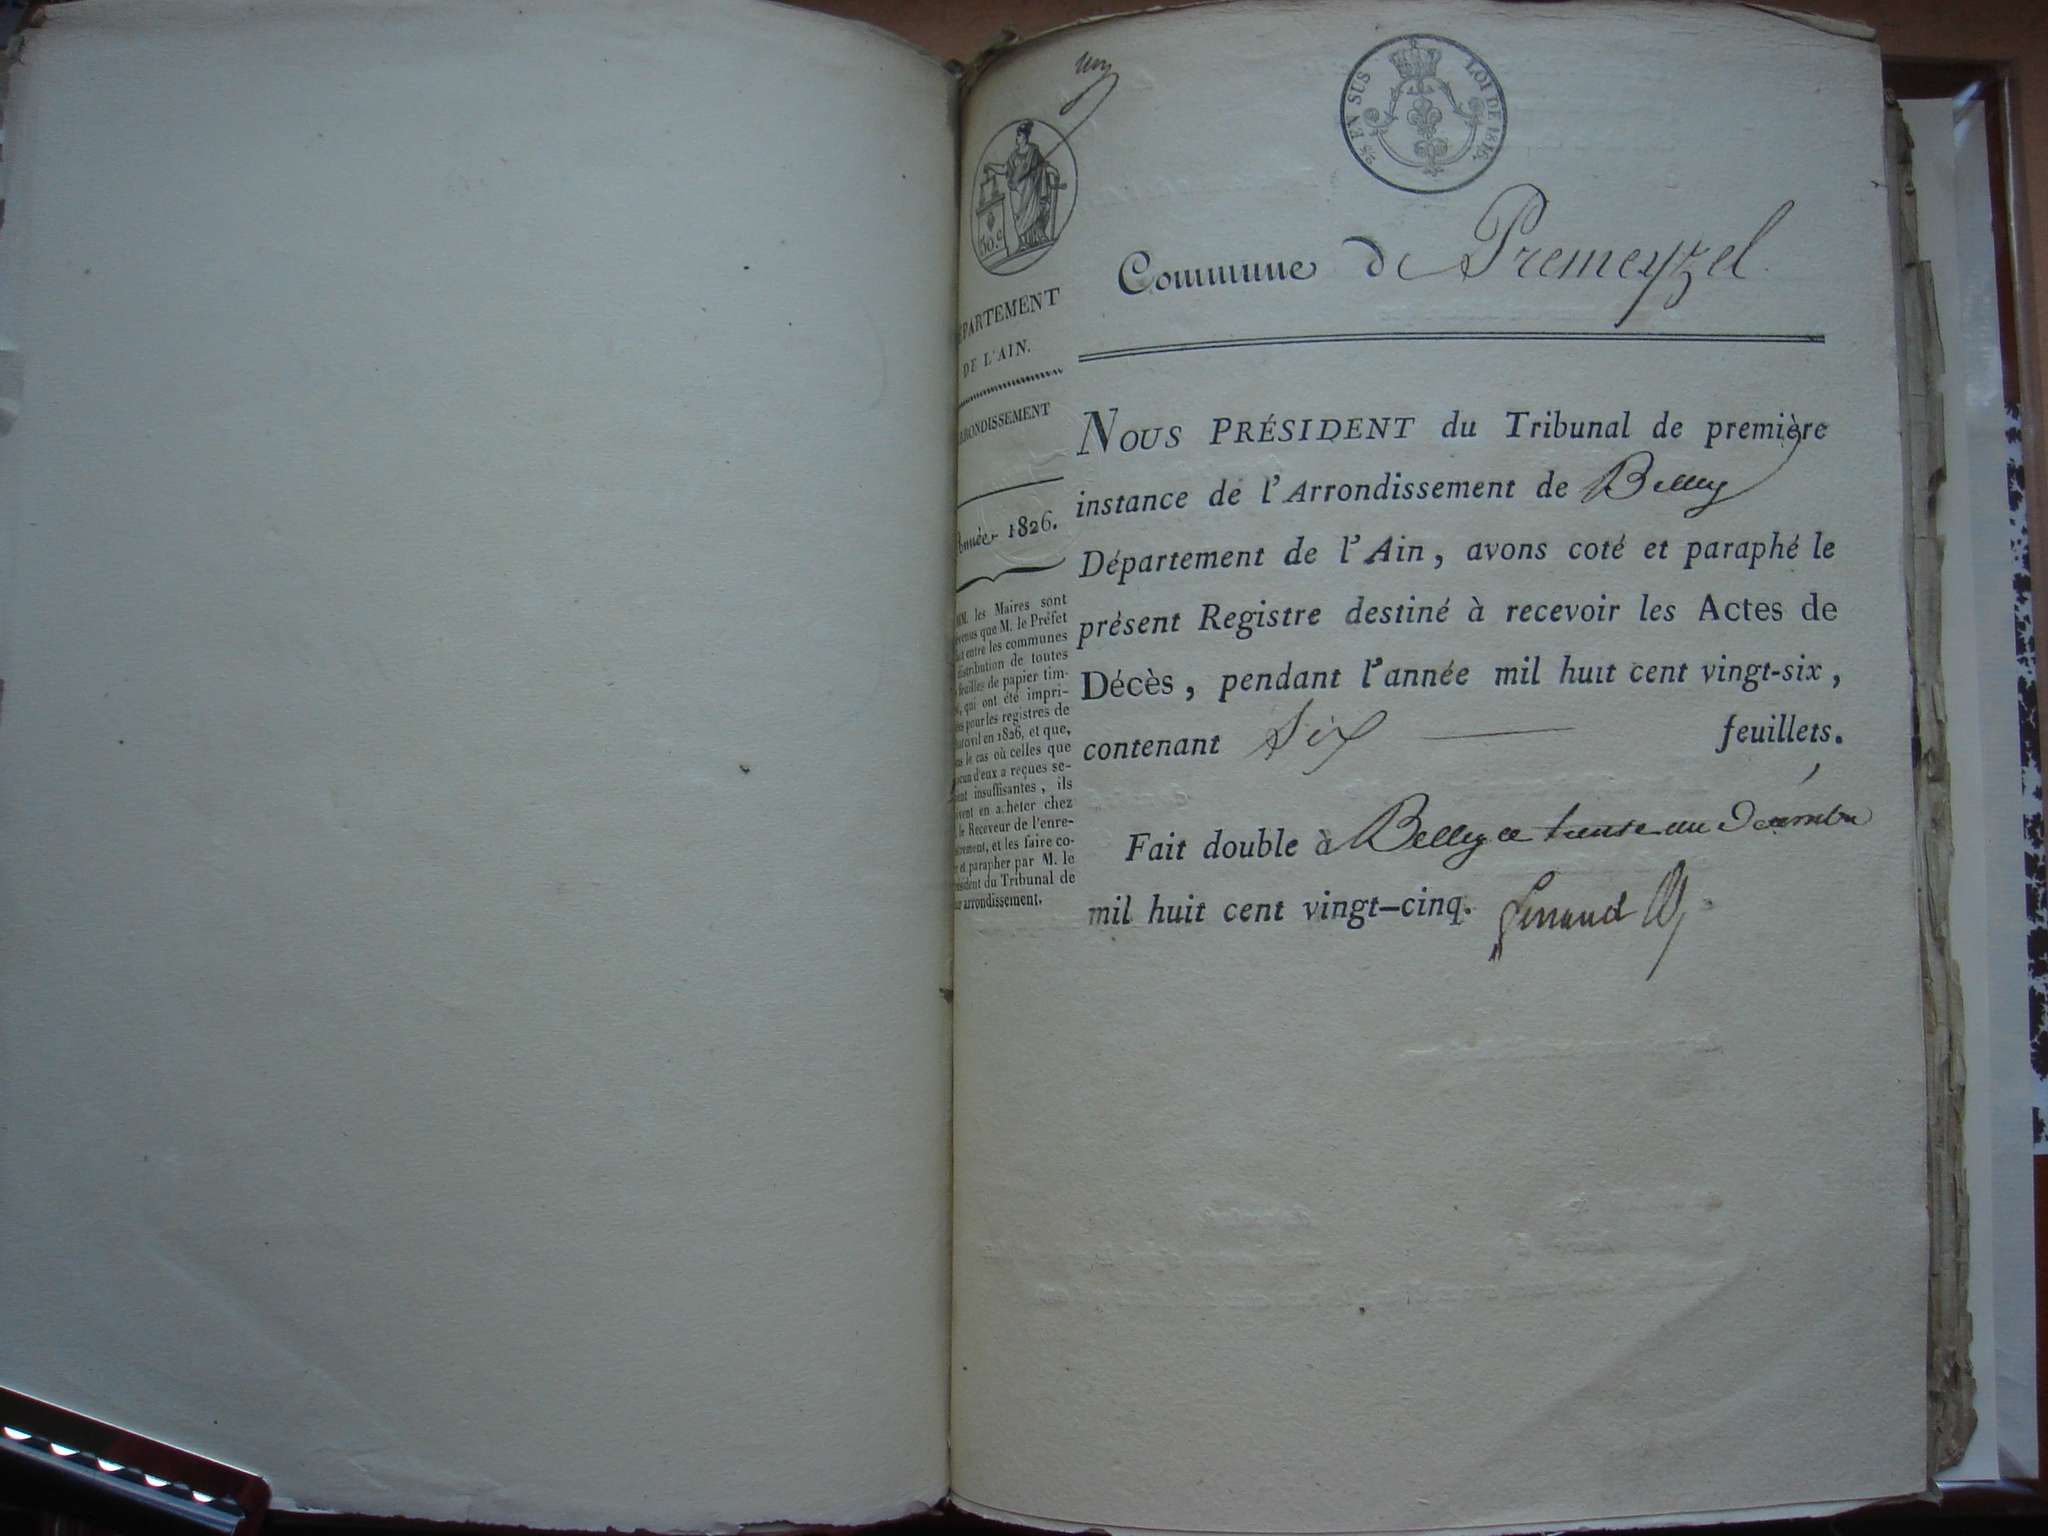 25 EN SUS LOI DE 1816.
30.c
Commune de Premeyzel
EPARTEMENT
DE L'AIN.
RRONDISSEMENT
Année 1826.
MM. les Maires sont
venus que M. le Préfet
entre les communes
distribution de toutes
feuilles de papier tim-
qui ont été impri-
pour les registres de
civil en 1826, et que,
le cas où celles que
d'eux a reçues se-
insuffisantes, ils
vent en acheter chez
le Receveur de l'enre-
trement, et les faire co-
et parapher par M. le
ésident du Tribunal de
arrondissement.
NOUS PRÉSIDENT du Tribunal de première
instance de l'Arrondissement de Belley
Département de l'Ain, avons coté et paraphé le
présent Registre destiné à recevoir les Actes de
Décès, pendant l'année mil huit cent vingt-six,
contenant Six — feuillets.
Fait double à Belley ce trente un Décembre
mil huit cent vingt-cinq.